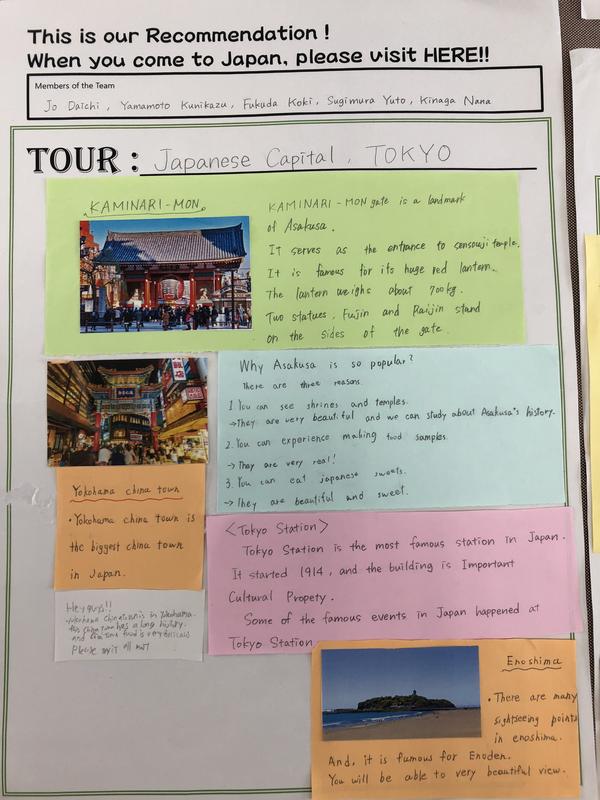 This is our Recommendation !
When you come to Japan, please visit HERE!!
Members of the Team
Jo Daichi, Yamamoto Kunikazu, Fukuda Koki, Sugimura Yuto, Kinaga Nana
TOUR : Japanese Capital, TOKYO
KAMINARI-MON
KAMINARI-MON gate is a landmark
of Asakusa.
It serves as the entrance to sensouji temple.
It is famous for its huge red lantern.
The lantern weighs about 700kg.
Two statues, Fujin and Raijin stand
on the sides of the gate.
Why Asakusa is so popular?
There are three reasons.
1. You can see shrines and temples.
→They are very beautiful and we can study about Asakusa's history.
2. You can experience making food samples.
→ They are very real!
3. You can eat japanese sweets.
→ They are beautiful and sweet.
Yokohama china town
・Yokohama china town is
the biggest china town
in Japan.
<Tokyo Station>
Tokyo Station is the most famous station in Japan.
It started 1914, and the building is Important
Cultural Propety.
Some of the famous events in Japan happened at
Tokyo Station
Hey guys!!
Yokohama Chinatown is in Yokohama.
this China town has a long history.
and food is very
Please
Enoshima
・There are many
sightseeing points
in enoshima.
And, it is fumous for Enoden.
You will be able to very beautiful view.